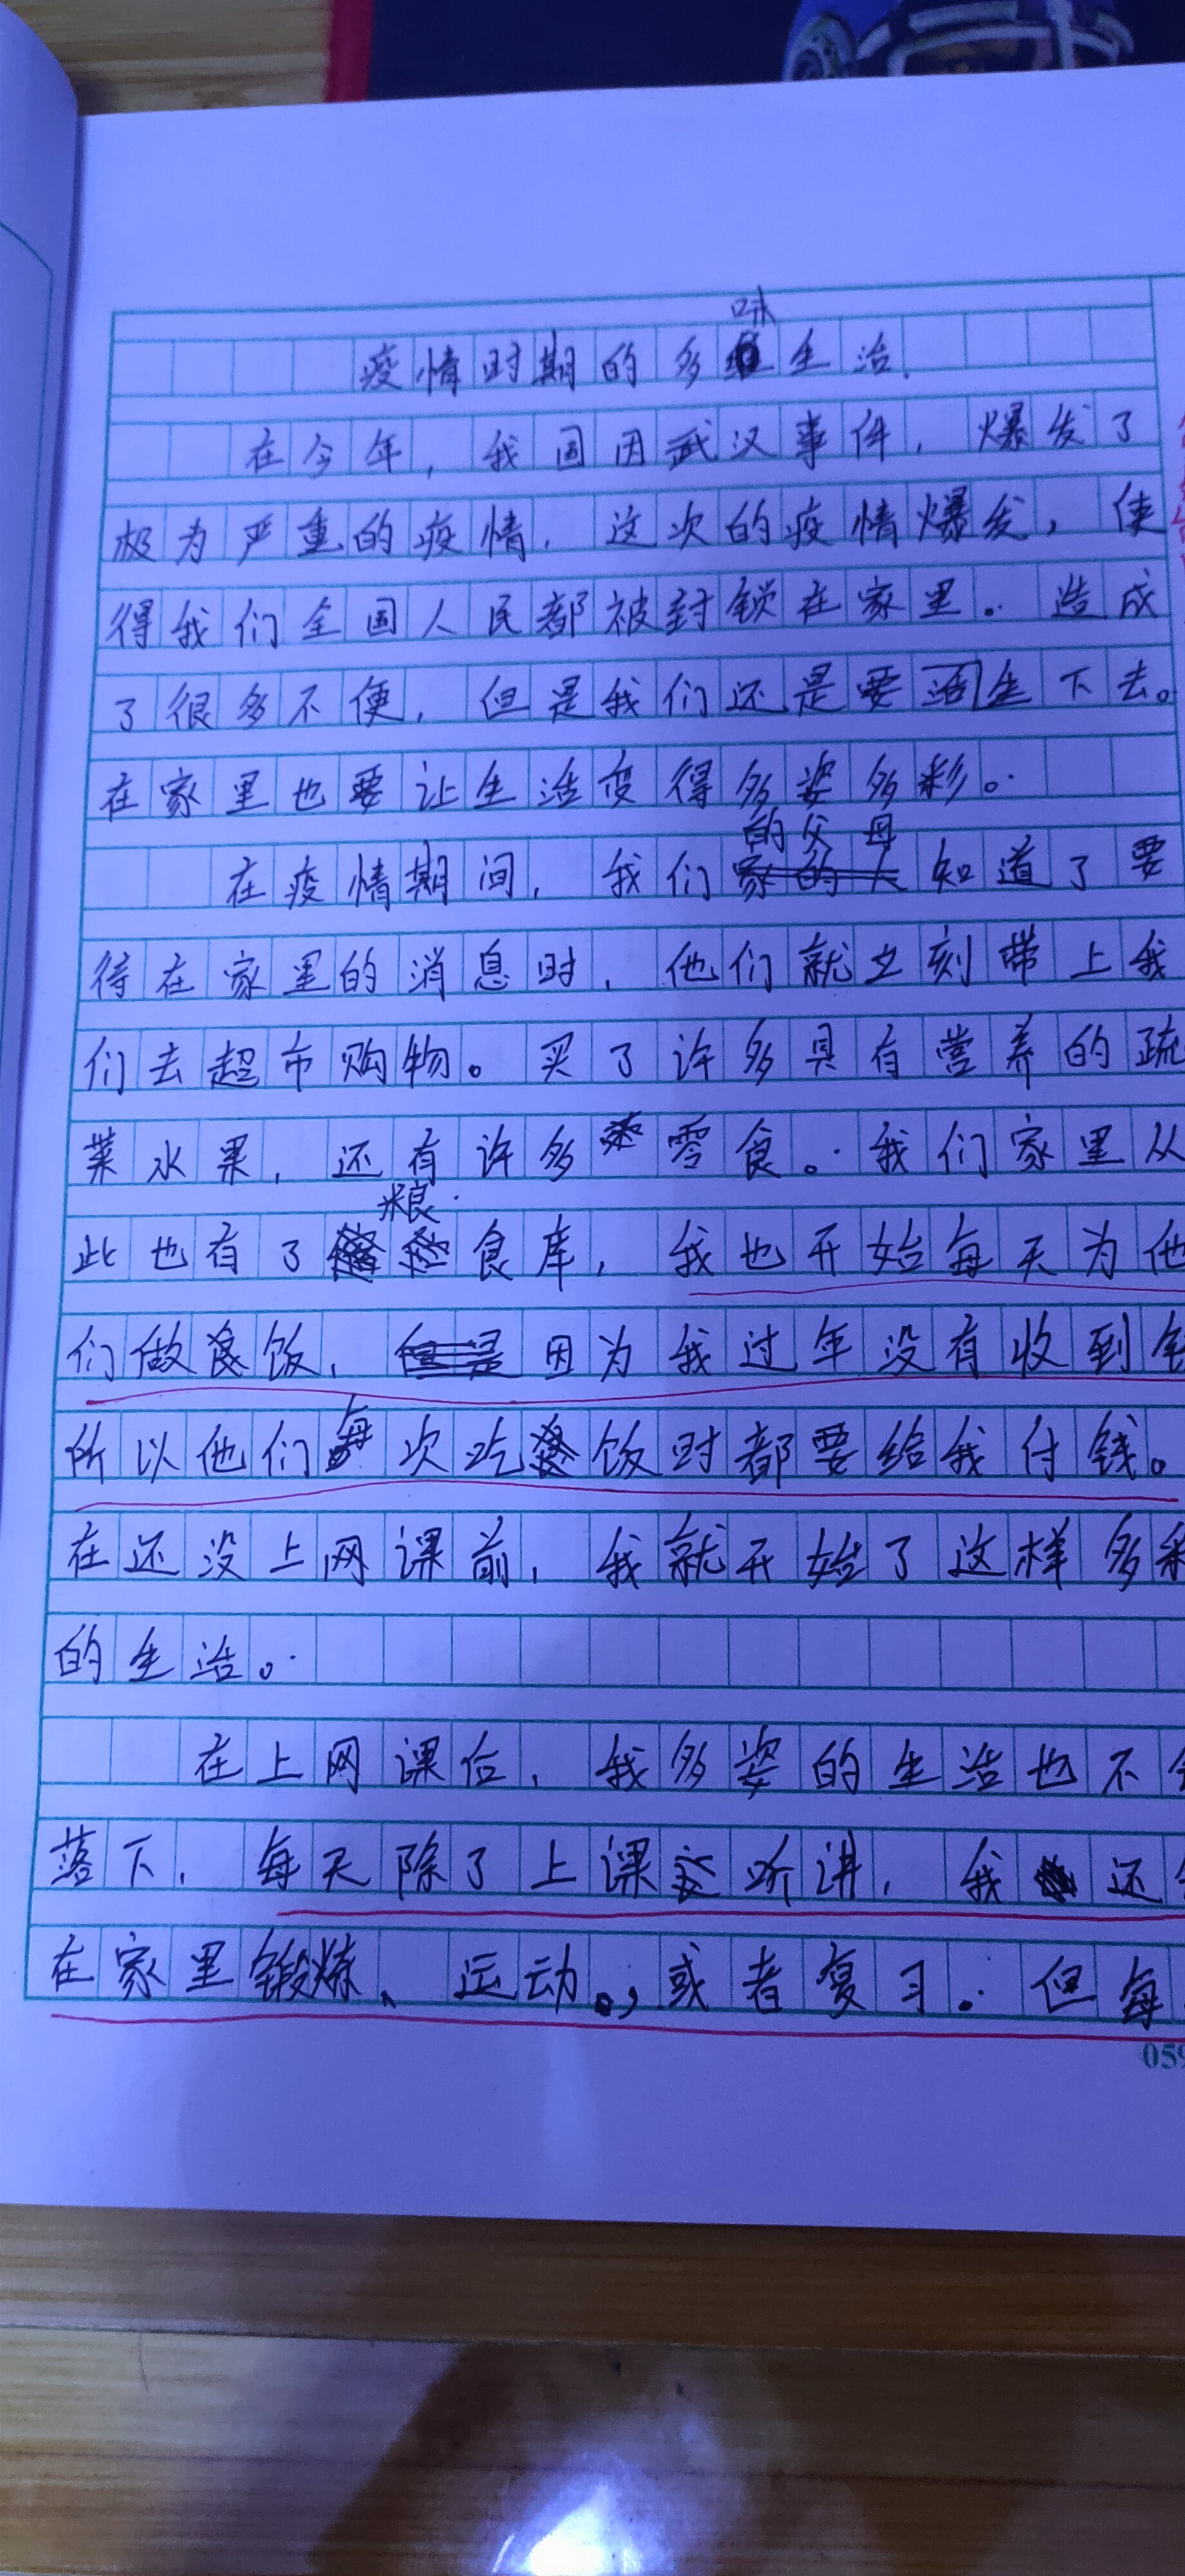 疫情时期的多味生活
在今年，我国因武汉事件，爆发了
极为严重的疫情，这次的疫情爆发，使
得我们全国人民都被封锁在家里。造成
了很多不便，但是我们还是要活生下去。
在家里也要让生活变得多姿多彩。
在疫情期间，我们的父母知道了要
待在家里的消息时，他们就立刻带上我
们去超市购物。买了许多具有营养的疏
菜水果，还有许多零食。我们家里从
此也有了粮食库，我也开始每天为他
们做饭，因为我过年没有收到
所以他们每次吃饭时都要给我付钱。
在还没上网课前，我就开始了这样多
的生活。
在上网课后，我多姿的生活也不
落下，每天除了上课听讲，我还
在家里锻炼、运动，或者复习。但每
059